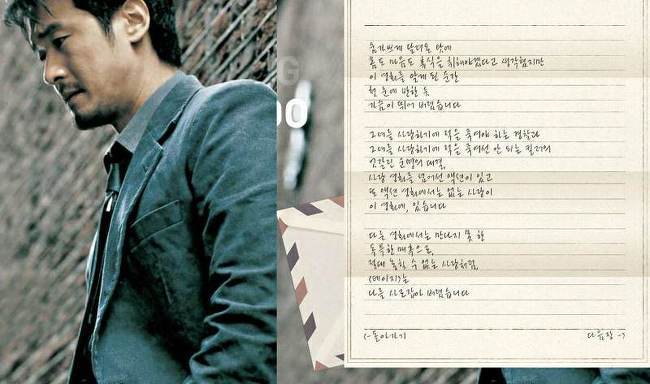 G
OO
숨가쁘게 달려온 탓에
몸도 마음도 휴식을 취해야겠다고 생각했지만
이 영화를 알게 된 순간
첫 눈에 반한 듯
가슴이 뛰어 버렸습니다
그녀를 사랑하기에 적을 죽여야 하는 경찰과
그녀를 사랑하기에 적을 죽여선 안 되는 킬러의
엇갈린 운명의 대결,
사랑 영화를 넘어선 액션이 있고
또 액션 영화에서는 없는 사랑이
이 영화에, 있습니다
다른 영화에서는 만나지 못 할
독특한 매혹으로,
절대 놓칠 수 없는 사랑처럼,
<데이지>는
나를 사로잡아 버렸습니다
<-돌아가기 다음장->